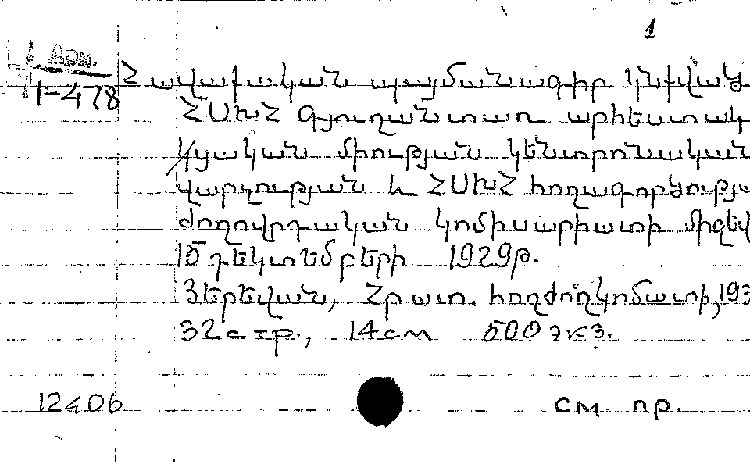 1
Հավաքական պայմանագիր կնքված
1-478
ՀՍԽՀ Գյուղանտառ արհեստակ
կցական միության կենտրոնական
վարչության և ՀՍԽՀ հողագործությա
ժողովրդական կոմիսարիատի միջև
15 դեկտեմբերի 1929թ.
Յերեվան, Հրատ. հողժողկոմատի, 193
32 стр., 14 см 500 экз.
12406 см. пр.